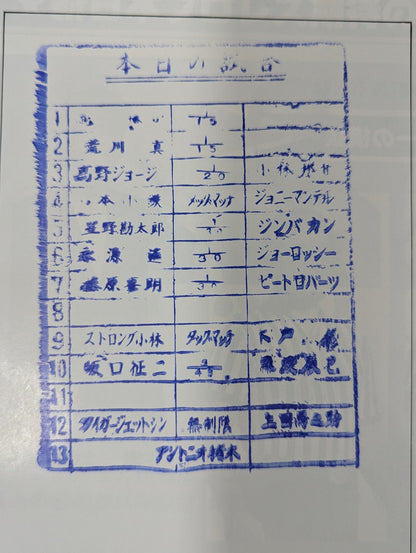 本日の試合
1 1/15
2 荒川 真 1/15
3 高野ジョージ 1/20 小林邦
4 本小 メッドマッチ ジョニーマンテル
5 星野勘太郎 1/30 ジンバカン
6 永源遥 1/30 ジョーロッシー
7 藤原喜明 1/30 ピートロバーツ
8
9 ストロング小林 タッグマッチ 木戸 修
10 坂口征二 1/45 藤波辰巳
11
12 タイガージェットシン 無制限 上田馬之助
13 アントニオ猪木